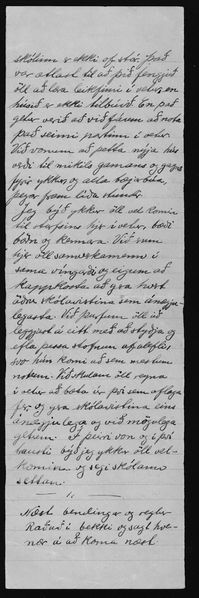 skólum er ekki of stór. Það
var ætlast til að þið fengjuð
öll að læra leikfimi í vetur, en
húsið er ekki tilbúið. En það
getur verið að við fáum að nota
það seinni partinn í vetur.
Við vonum að þetta nýja hús
verði til mikils gamans og gagns
fyrir ykkur og alla bæjarbúa,
þegar fram líða stundir.
Jeg býð ykkur öll velkomin
til starfsins hjer í vetur, bæði
börn og kennara. Við erum
hjer öll samverkamenn í
sama víngarði og eigum að
kappkosta að gera hvert
öðru skólavistina sem ánægju-
legasta. Við þurfum öll að
leggjast á eitt með að styðja og
efla þessa stofnun af alefli
svo hún komi að sem mestum
notum. Við skulum öll reyna
í vetur að bæta úr því sem aflaga
fer og gera skólavistina eins
ánægjulega og við mögulega
getum. Í þeirri von og í því
trausti býð jeg ykkur öll vel-
komin og segi skólann
settan.
Næst bendingar og reglur
Raðað í bekki og sagt hve-
nær á að koma næst.